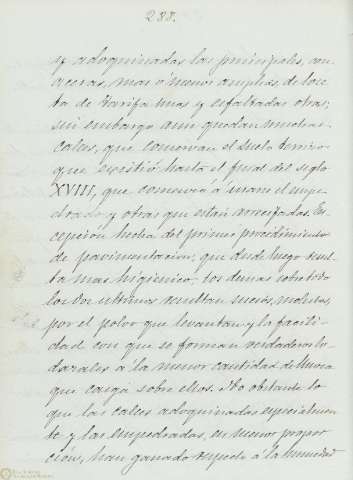 288.
y adoquinadas las principales, con
aceras, mas ó menor amplias, de lose-
ta de Tarifa unas y esfaltadas otras;
sin embargo aun quedan muchas
calles, que conservan el suelo terrizo
que existió hasta el final del siglo
XVIII, que comenzó á usarse el empe-
drado y otras que estan arrecifadas. Es-
cepcion hecha del primer procedimiento
de pavimentacion, que desde luego resul-
ta mas higiénico, los demas sobre todo
los dos ultimos resultan sucios, molestos,
por el polvo que levantan y la facili-
dad con que se forman verdaderos lo-
dazales á la menor cantidad de lluvia
que caiga sobre ellos. No obstante lo
que las calles adoquinadas especialmen-
te y las empedradas, en menor propor-
ción, han ganado respecto á la humedad